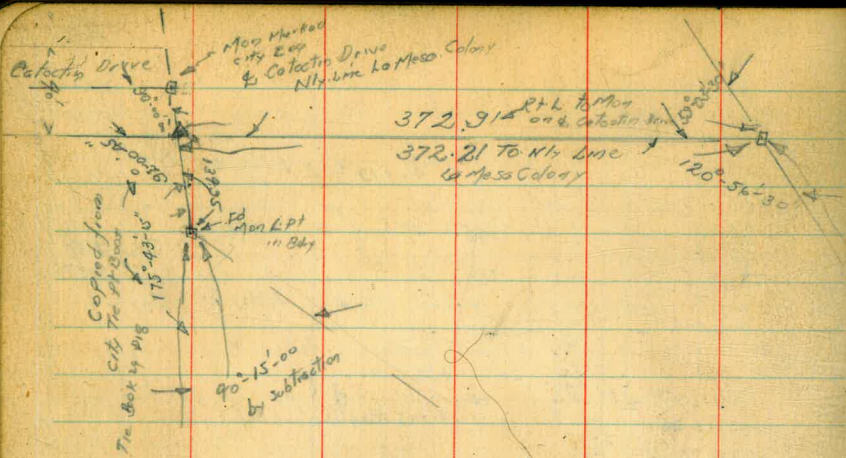 Mon Marked
City Eng
& Catoctin Drive
Nly. Line La Mesa. Colony
Catoctin Drive
40'
90°-00'-00"
372.91 Rt L to Mon
on & Catoctin Drive
372.21 To Nly Line
La Mesa Colony
120°-56'-30"
92°-00'-45"
139.25
Fd
Mon L.pt
in Bdy
175°-43'-15"
Copied from
City Tie Pt Book
Tie Book 29 P18
90°-15'-00
by subtraction